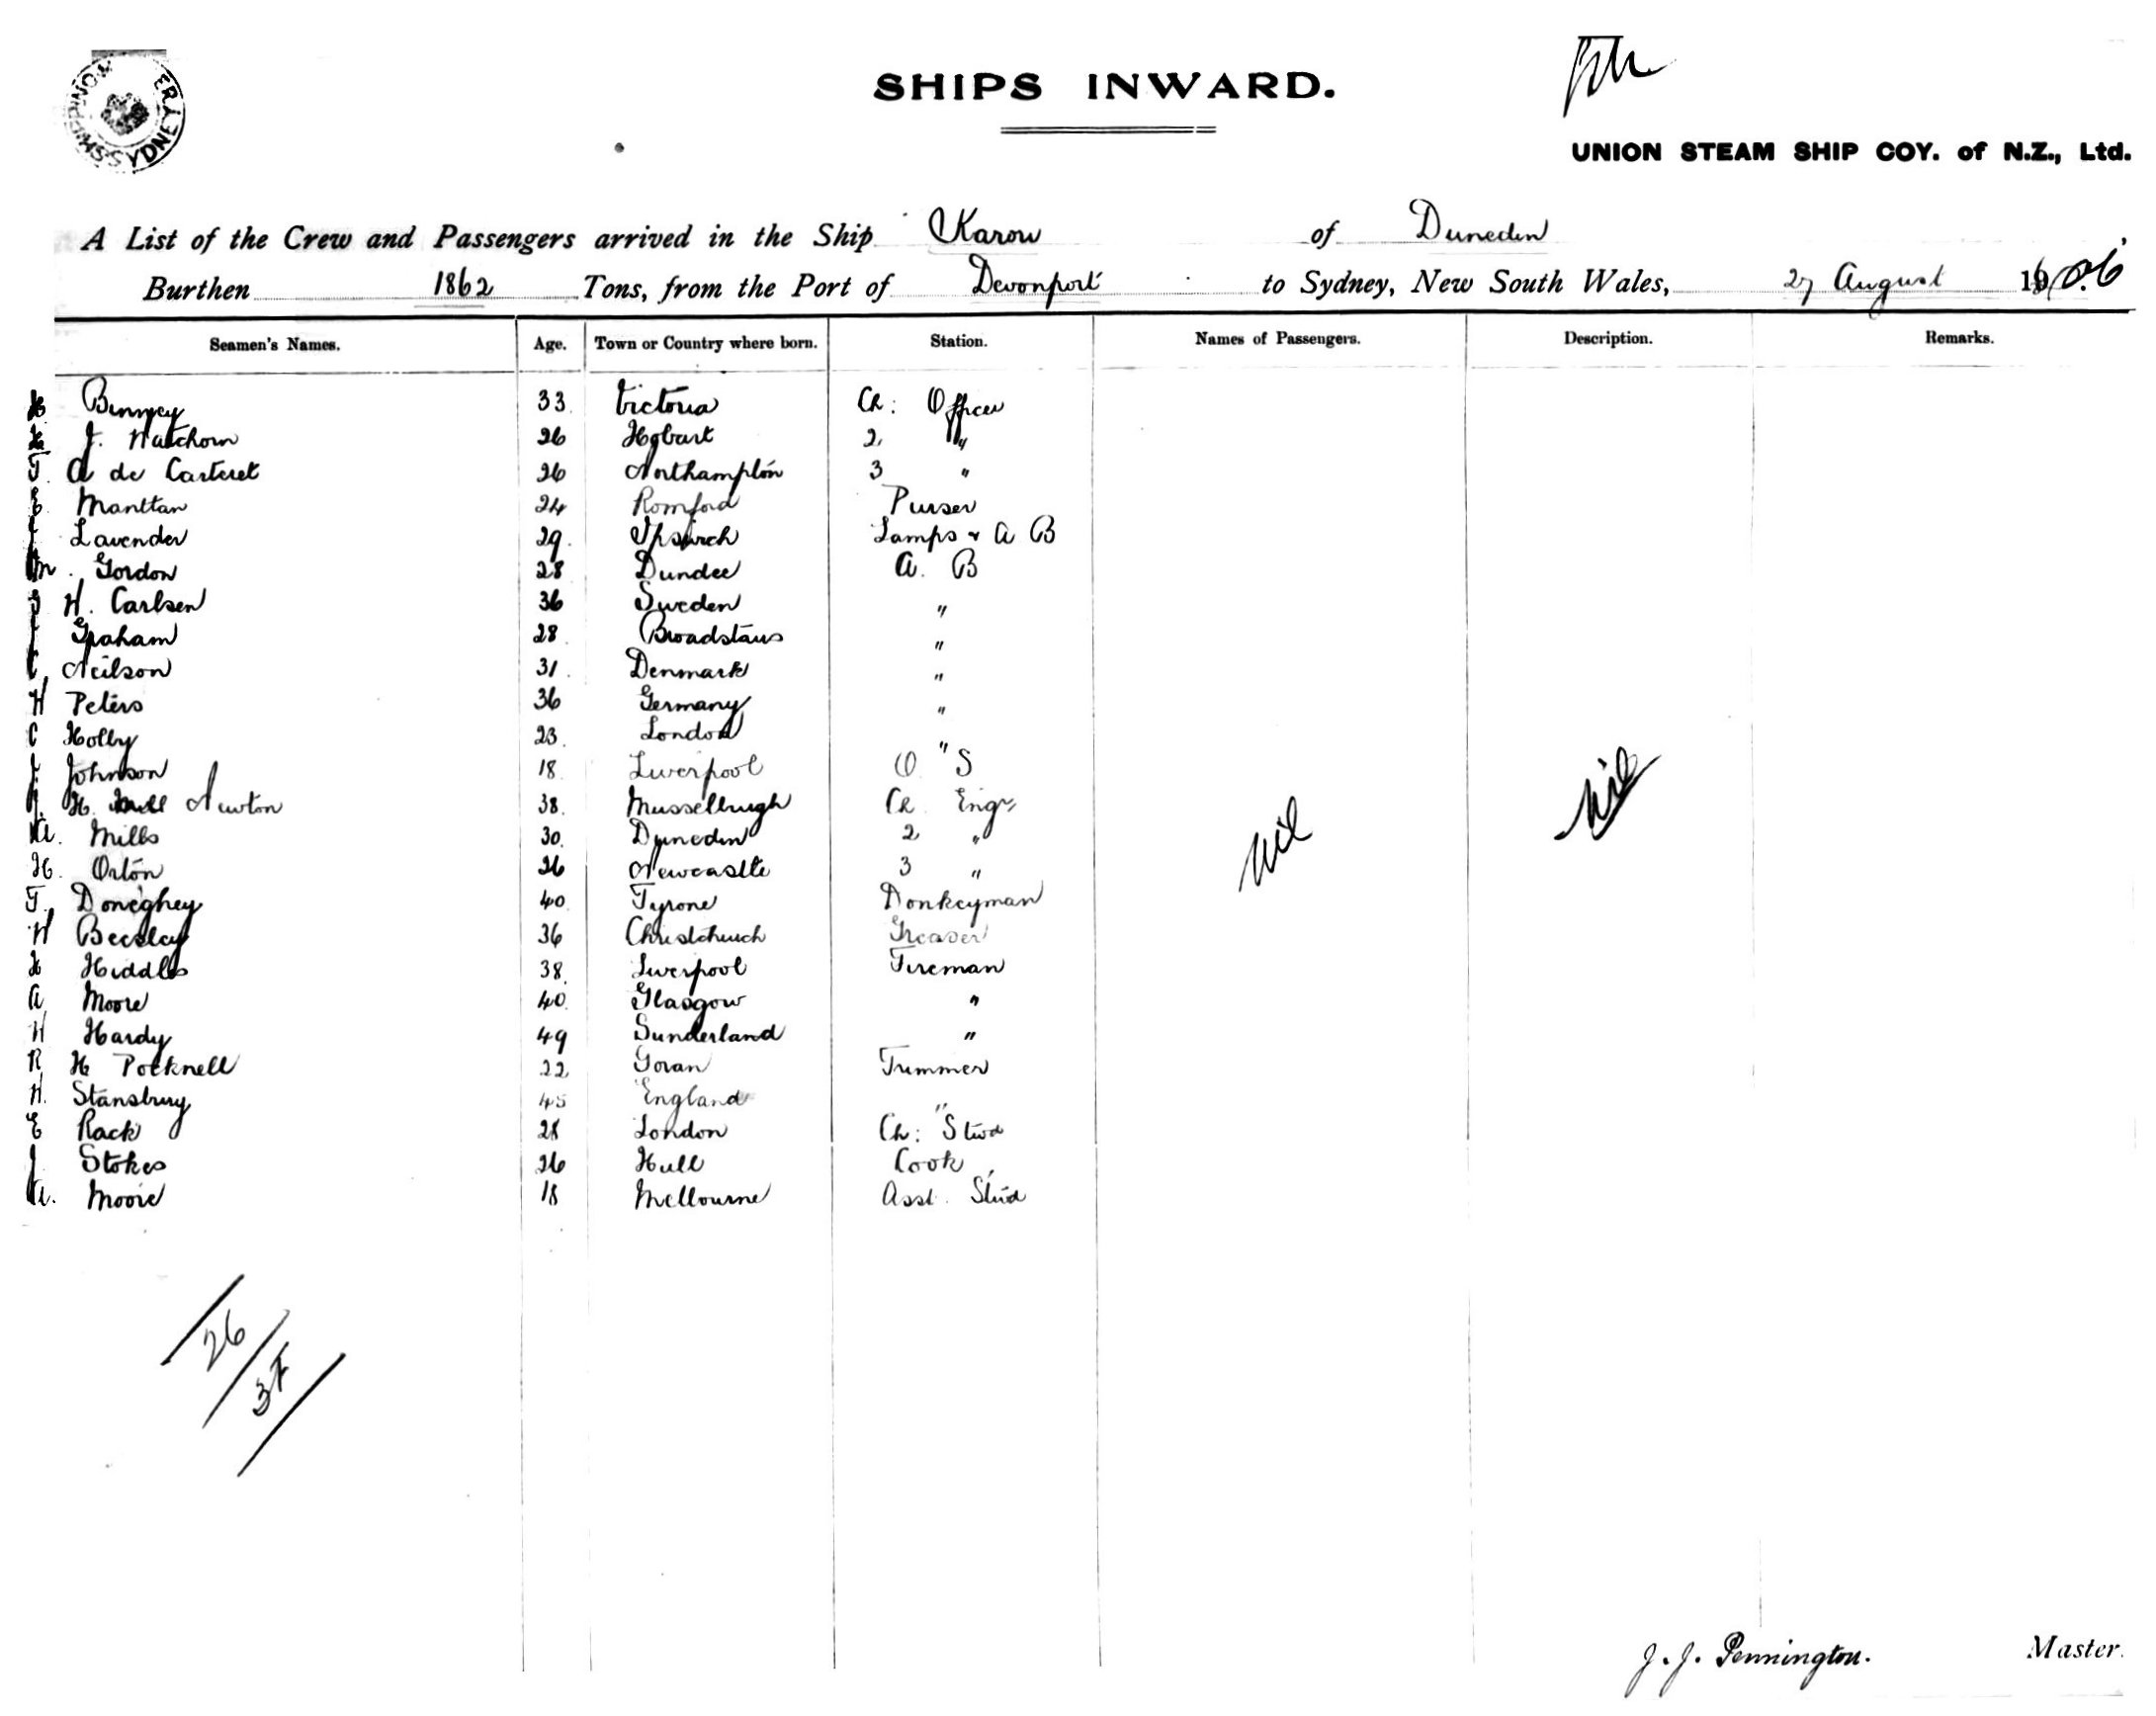 SHIPPING MASTER SYDNEY
SHIPS INWARD.
UNION STEAM SHIP COY. of N.Z., Ltd.
A List of the Crew and Passengers arrived in the Ship Karori of Dunedin
Burthen 1862 Tons, from the Port of Devonport to Sydney, New South Wales, 27 August 1906
Seamen's Names. Age. Town or Country where born. Station. Names of Passengers. Description. Remarks.
Binney 33 Victoria Ch: Officer
J. Watchorn 26 Hobart 2 "
F. A de Carteret 26 Northampton 3 "
E. Manttan 24 Romford Purser
Lavender 29 Ipswich Lamps & A B
M. Gordon 28 Dundee A. B
J H. Carlsen 36 Sweden "
J Graham 28 Broadstairs "
C Neilson 31 Denmark "
W Peters 36 Germany "
C Holby 23 London "
J. Johnson 18 Liverpool O S
J. H. Newton 38 Musselburgh Ch Engr
W. Mills 30 Dunedin 2 "
H. Orton 26 Newcastle 3 "
F. Doneghey 40 Tyrone Donkeyman
W Beesley 36 Christchurch Greaser
H Hiddles 38 Liverpool Fireman
A Moore 40 Glasgow "
W Hardy 49 Sunderland "
R H Pocknell 22 Govan Trimmer
H. Stansbury 45 England "
E Rack 28 London Ch: Stwd
J Stokes 26 Hull Cook
W. Moore 18 Melbourne Asst. Stwd
nil nil
26
J. J. Pennington. Master.